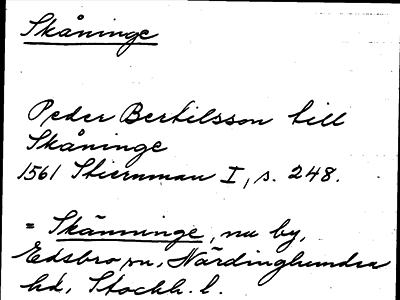 Skåninge
Peder Bertilsson till
Skåninge
1561 Stiernman I, s. 248.
= Skänninge, nu by,
Edsbro sn, Närdinghundra
hd, Stockh. l.